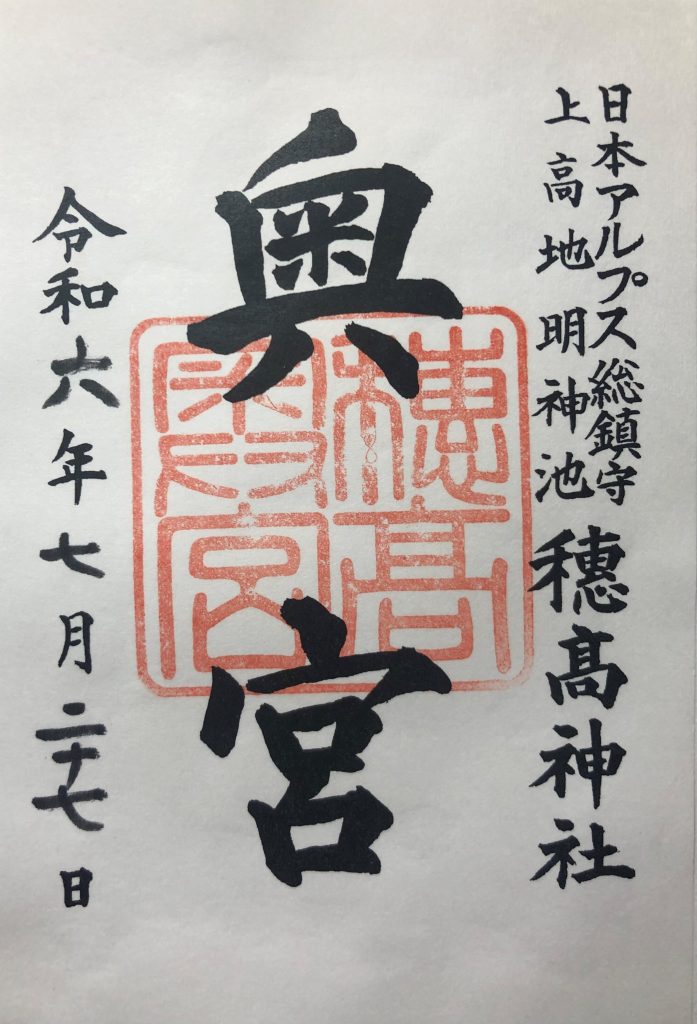 日本アルプス総鎮守
上高地明神池
穂髙神社
奥宮
穂髙
宮
令和六年七月二十七日